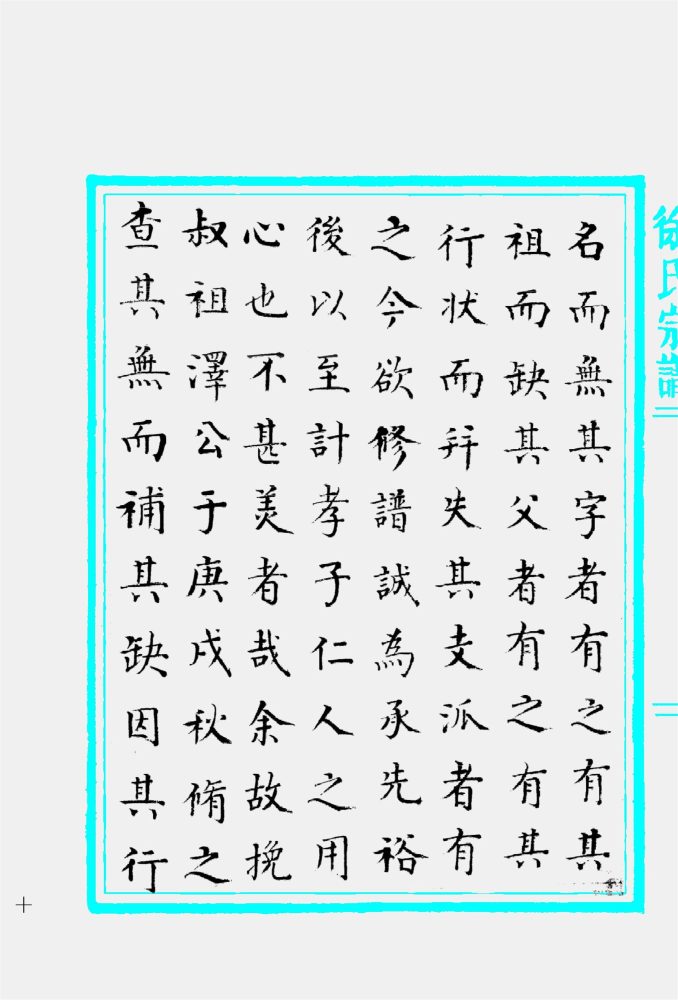 徐氏宗譜
名而無其字者有之有其
祖而缺其父者有之有其
行狀而并失其支派者有
之今欲修譜誠為承先裕
後以至計孝子仁人之用
心也不甚羙者哉余故挽
叔祖澤公于庚戌秋脩之
查其無而補其缺因其行